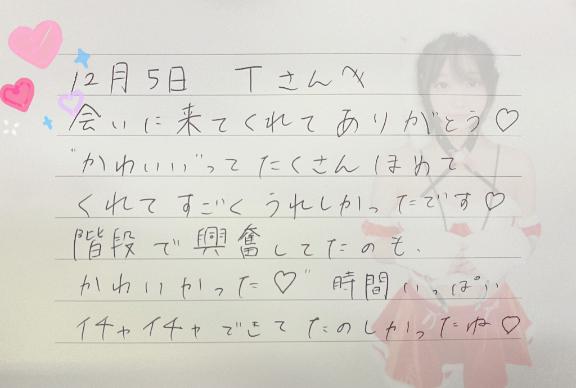 12月5日 Tさんへ
会いに来てくれてありがとう♡
"かわいい"ってたくさんほめて
くれてすごくうれしかったです♡
階段で興奮してたのも、
かわいかった♡" 時間いっぱい
イチャイチャできてたのしかったね♡